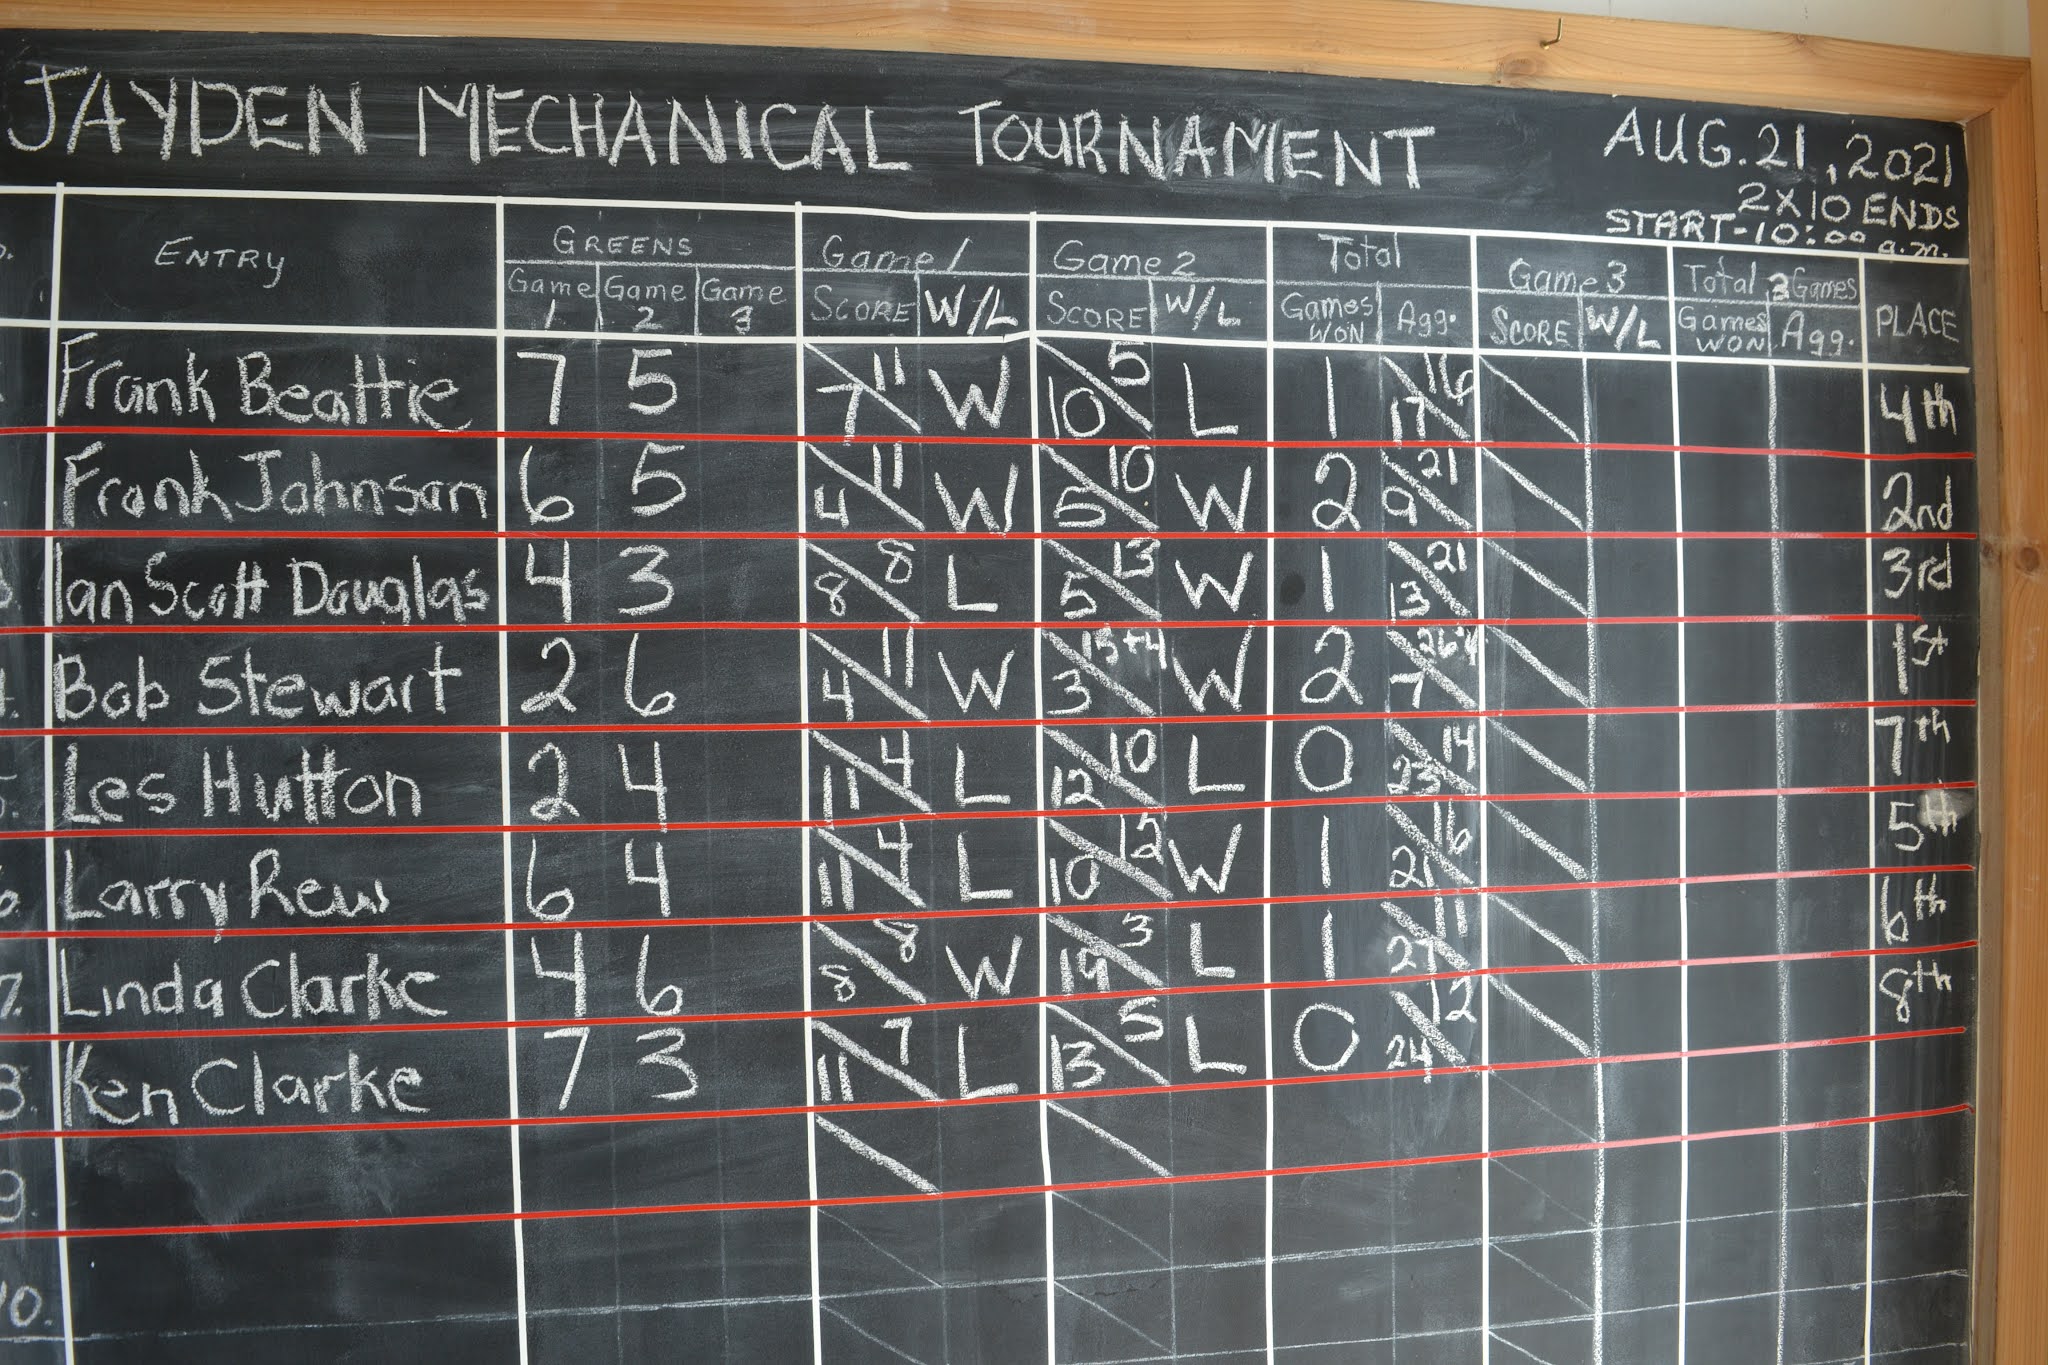 JAYDEN MECHANICAL TOURNAMENT AUG. 21, 2021
2 X 10 ENDS
START - 10:00 a.m.
ENTRY GREENS Game 1 Game 2 Total Game 3 Total 3 Games PLACE
Game 1 Game 2 Game 3 SCORE W/L SCORE W/L Games WON Agg. SCORE W/L Games WON Agg.
Frank Beattie 7 5 7 11 W 10 5 L 1 17 16 4th
Frank Johnson 6 5 4 11 W 5 10 W 2 9 21 2nd
3. Ian Scott Douglas 4 3 8 8 L 5 13 W 1 13 21 3rd
4. Bob Stewart 2 6 4 11 W 3 15+4 W 2 7 26+4 1st
5. Les Hutton 2 4 11 4 L 12 10 L 0 23 14 7th
6. Larry Rew 6 4 11 4 L 10 12 W 1 21 16 5th
7. Linda Clarke 4 6 8 8 W 19 3 L 1 27 11 6th
8. Ken Clarke 7 3 11 7 L 13 5 L 0 24 12 8th
9.
10.